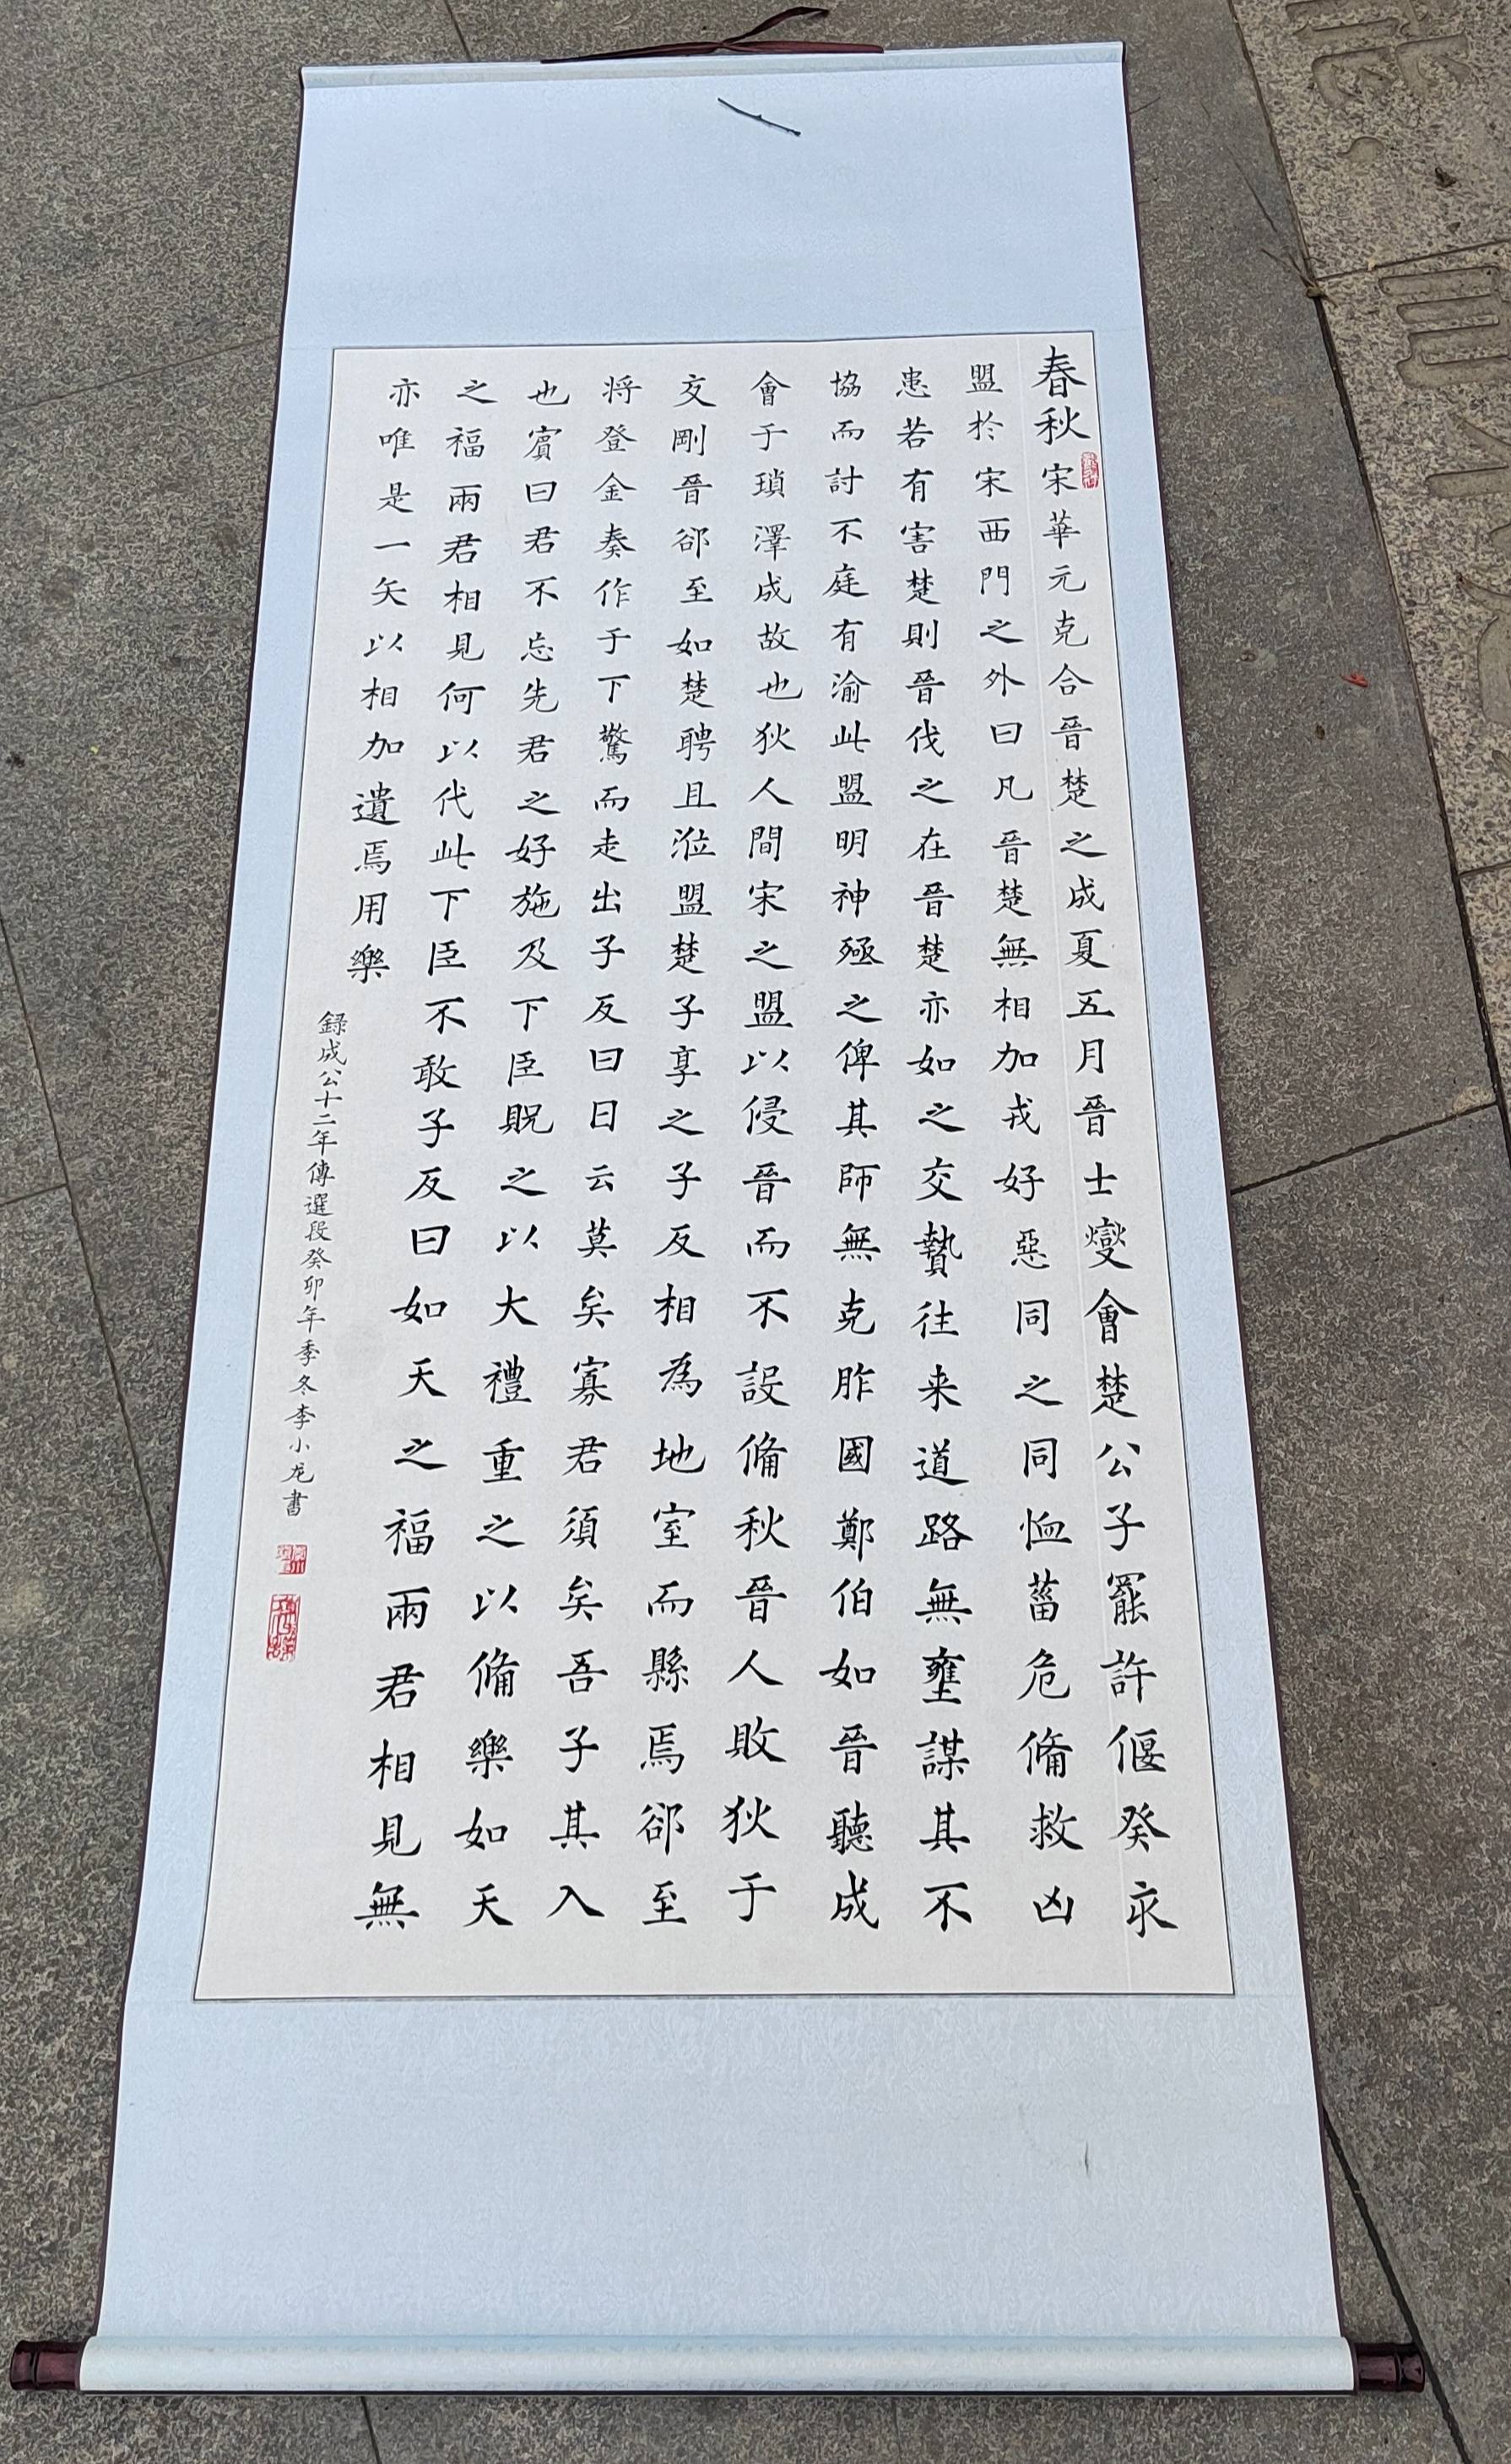 春秋宋華元克合晉楚之成夏五月晉士燮會楚公子罷許偃癸亥
盟於宋西門之外曰凡晉楚無相加戎好惡同之同恤菑危脩救凶
患若有害楚則晉伐之在晉楚亦如之交贄往来道路無壅謀其不
協而討不庭有渝此盟明神殛之俾其師無克胙國鄭伯如晉聽成
會于瑣澤成故也狄人間宋之盟以侵晉而不設脩秋晉人敗狄于
交剛晉郤至如楚聘且涖盟楚子享之子反相為地室而縣焉郤至
将登金奏作于下驚而走出子反曰日云莫矣寡君須矣吾子其入
也賓曰君不忘先君之好施及下臣貺之以大禮重之以脩樂如天
之福兩君相見何以代此下臣不敢子反曰如天之福兩君相見無
亦唯是一矢以相加遺焉用樂
録成公十二年傳選段癸卯年季冬李小龙書